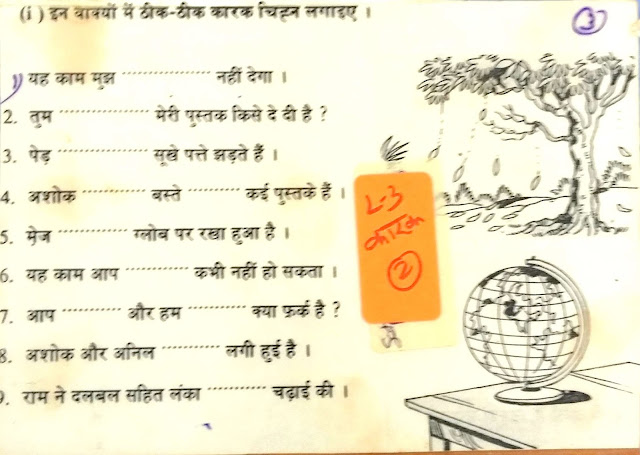 (i) इन वाक्यों में ठीक-ठीक कारक चिह्न लगाइए ।
3
1) यह काम मुझ ............... नहीं देगा ।
2. तुम ............... मेरी पुस्तक किसे दे दी है ?
3. पेड़ ............... सूखे पत्ते झड़ते हैं ।
4. अशोक ............ बस्ते ............ कई पुस्तके हैं ।
5. मेज ............... ग्लोब पर रखा हुआ है ।
6. यह काम आप ............... कभी नहीं हो सकता ।
7. आप ............... और हम ............ क्या फ़र्क है ?
8. अशोक और अनिल ............ लगी हुई है ।
9. राम ने दलबल सहित लंका ............ चढ़ाई की ।
L-3
कारक
2